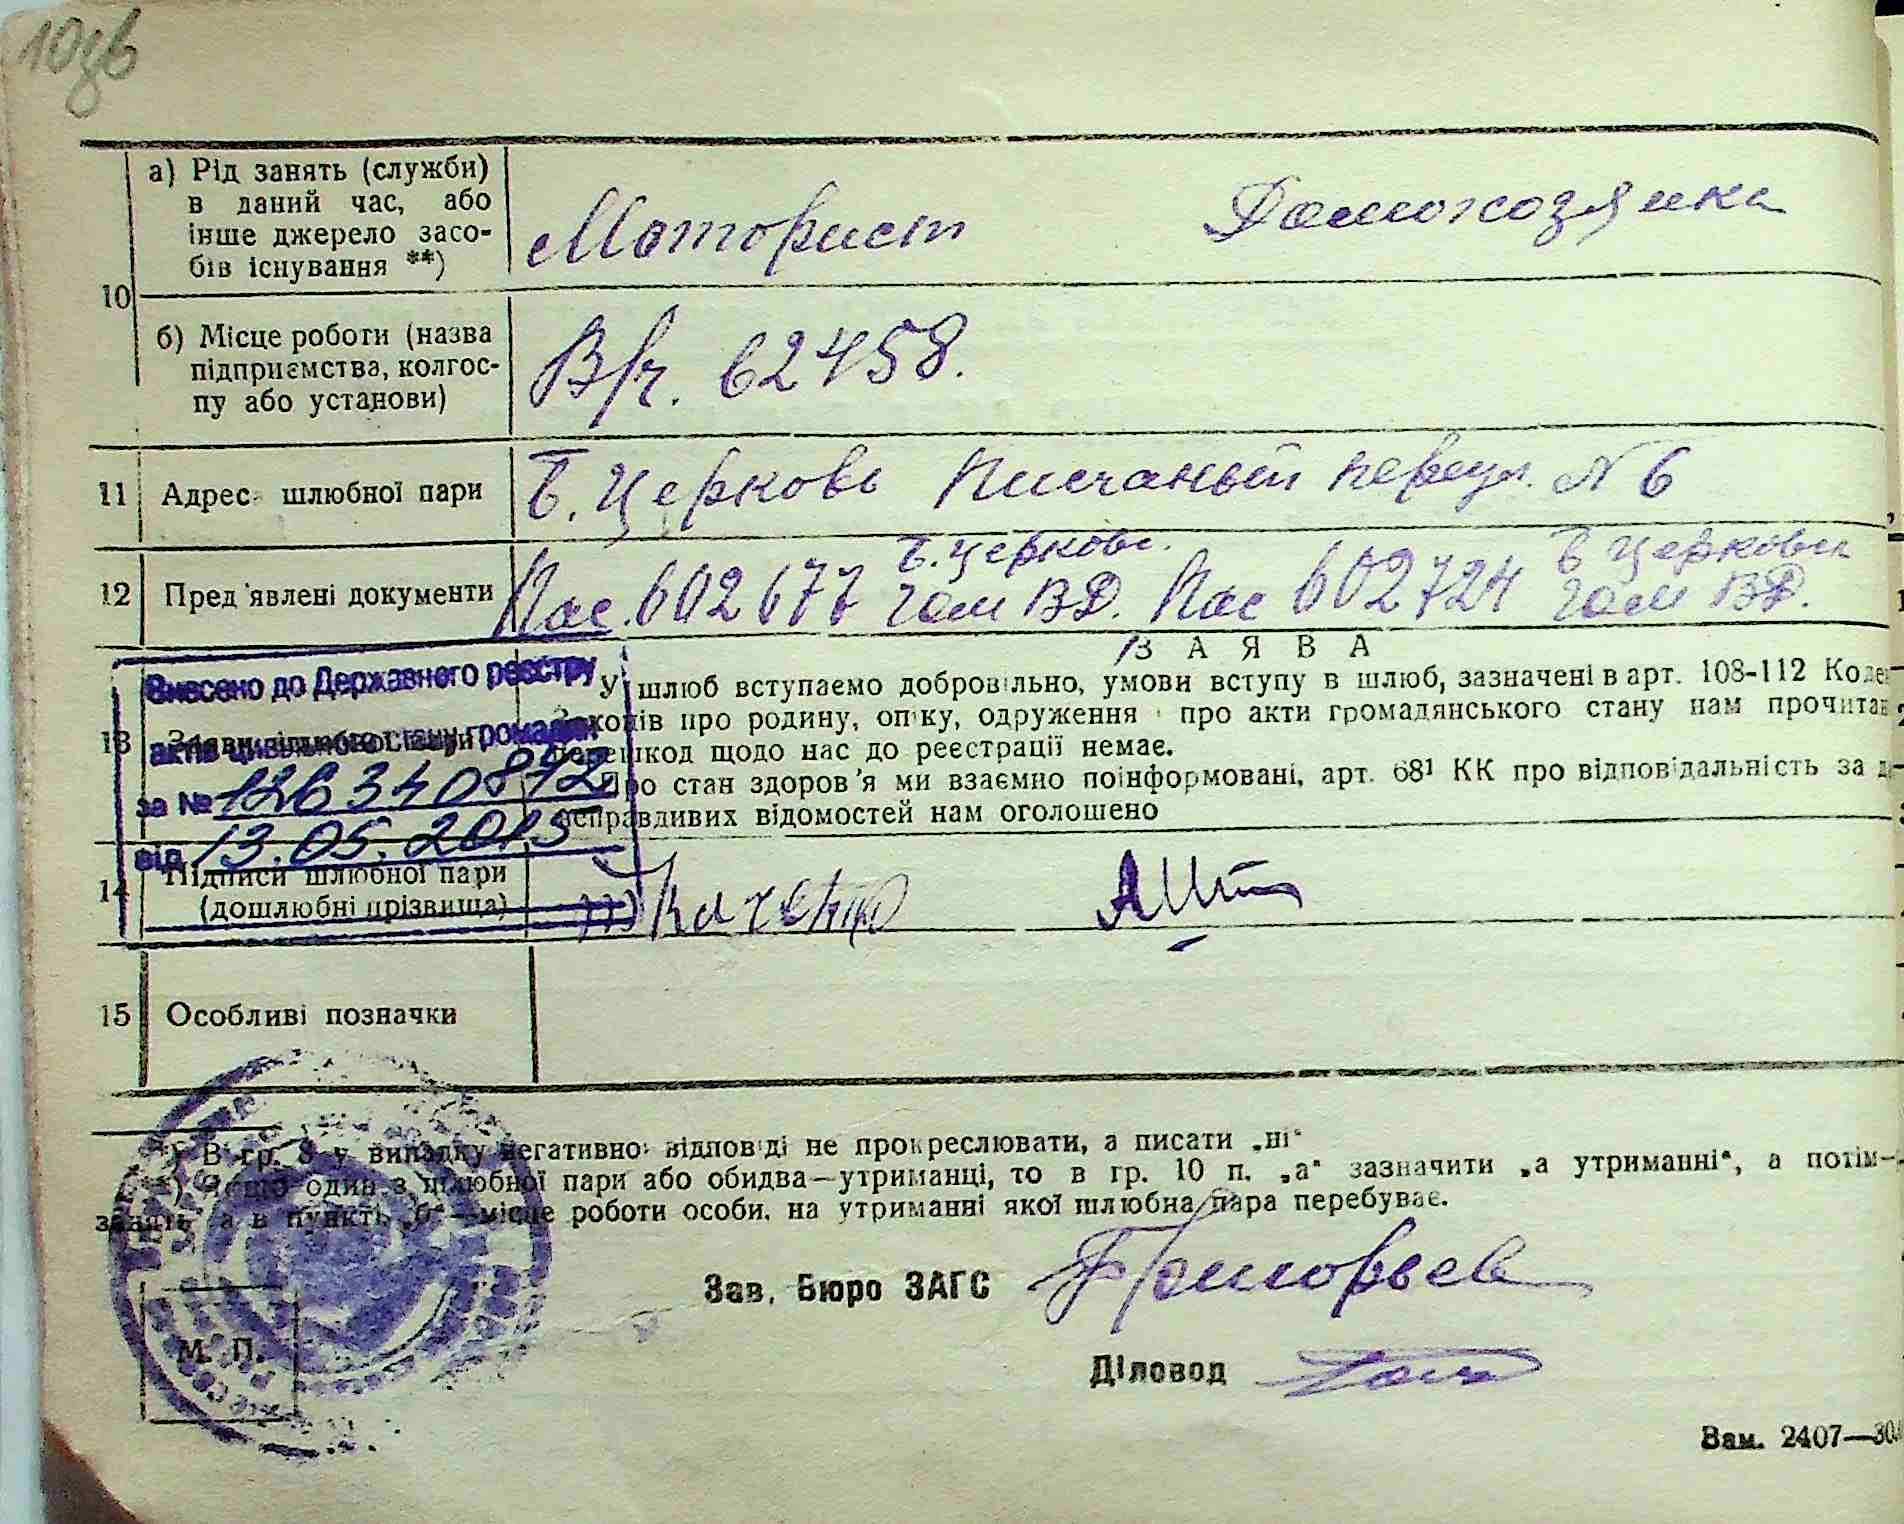 10зв
а) Рід занять (служби)
в даний час, або
інше джерело засо-
бів існування **)
Моторист Домохозяйка
10
б) Місце роботи (назва
підприємства, колгос-
пу або установи)
В/ч. 62458.
11 Адрес шлюбної пари Б. Церковь Писчаный переул. N 6
Б. Церковс. Б Церковск
12 Пред'явлені документи Пас. 602677 гом ВД. Пас 602724 гом ВД.
ЗАЯВА
Внесено до Державного реєстру
актів цивільного стану громадян
за № 126340872
від 13.05.2015
13
У шлюб вступаємо добровільно, умови вступу в шлюб, зазначені в арт. 108-112 Коде
законів про родину, опіку, одруження і про акти громадянського стану нам прочитан
перешкод щодо нас до реєстрації немає.
Про стан здоров'я ми взаємно поінформовані, арт. 68¹ КК про відповідальність за
неправдивих відомостей нам оголошено
14 Підписи шлюбної пари
(дошлюбні прізвища)
15 Особливі позначки
*) В гр. 8 у випадку негативної відповіді не прокреслювати, а писати „ні“
**) Якщо один з шлюбної пари або обидва—утриманці, то в гр. 10 п. „а“ зазначити „а утриманні“, а потім—
занять, а в пункті „б“—місце роботи особи, на утриманні якої шлюбна пара перебуває.
Зав. Бюро ЗАГС Григорьев
Діловод
М. П.
Зам. 2407—30